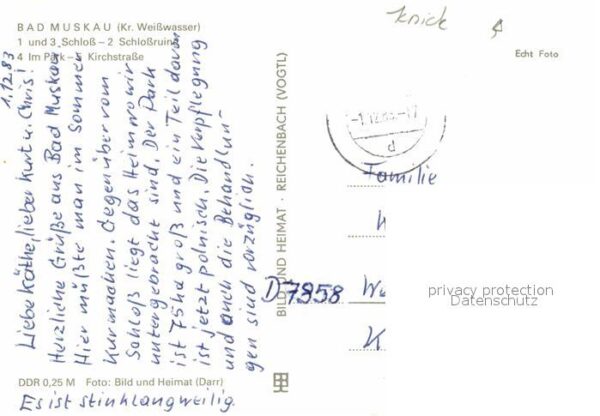 BAD MUSKAU (Kr. Weißwasser)
1 und 3 Schloß – 2 Schloßruine
4 Im Park – 5 Kirchstraße
Knick
Echt Foto
1.12.83
Liebe Käthe, lieber Kurt u. Chris!
Herzliche Grüße aus Bad Muskau.
Hier müßte man im Sommer
Kur machen. Gegenüber vom
Schloß liegt das Heim wo wir
untergebracht sind. Der Park
ist 75ha groß und ein Teil davon
ist jetzt polnisch. Die Verpflegung
und auch die Behandlun-
gen sind vorzüglich.
Es ist stinklangweilig.
BILD UND HEIMAT · REICHENBACH (VOGTL)
DDR 0,25 M Foto: Bild und Heimat (Darr)
d
Familie
D 7958
privacy protection
Datenschutz